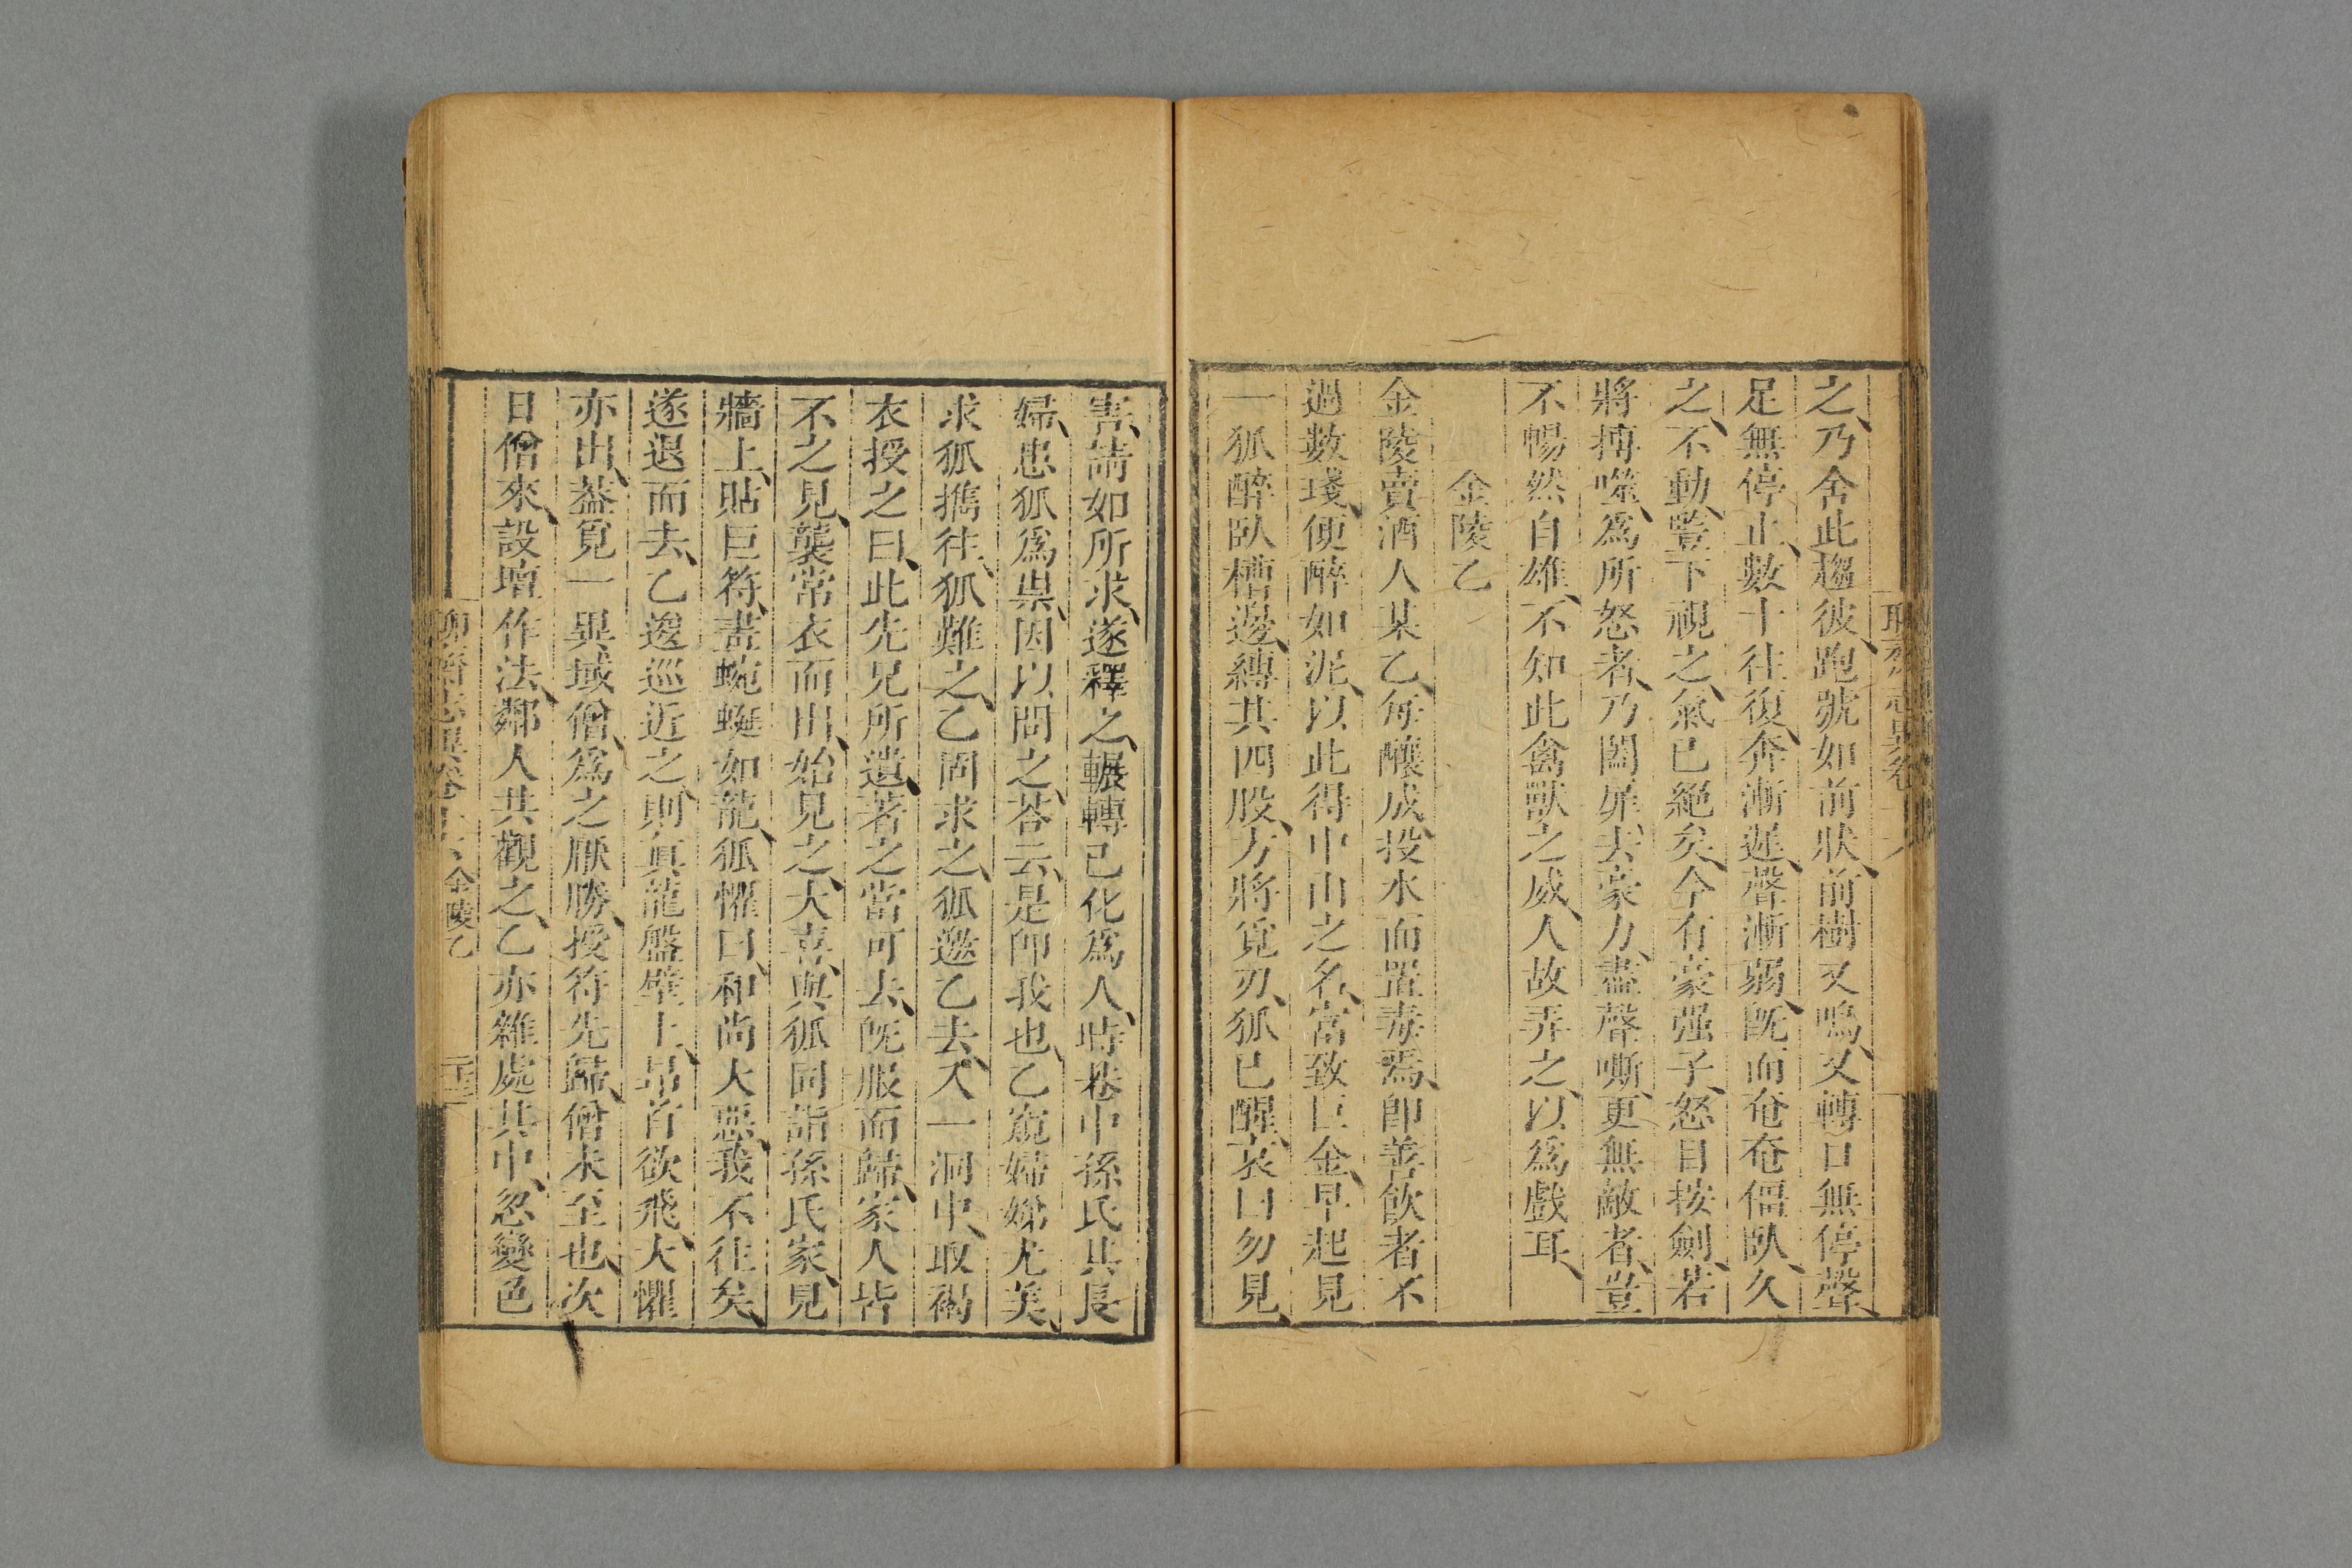 之、乃舍此趨彼、跑號如前狀、前樹又鳴、又轉口無停聲、
足無停止、數十往復、奔漸遲、聲漸弱、旣而奄奄僵臥、久
之、不動、暨下視之、氣已絕矣、今有豪强子、怒目按劍、若
將搏噬、爲所怒者、乃闔扉去、豪力、盡聲嘶、更無敵者、豈
不暢然自雄、不知此禽獸之威、人故弄之、以爲戲耳、
金陵乙
金陵賣酒人某乙、每釀成、投水而置毒焉、卽善飲者、不
過數琖、便醉如泥、以此得中山之名、富致巨金、早起見
一狐醉臥槽邊、縛其四股、方將覓刃、狐已醒、哀曰勿見、
害、請如所求、遂釋之、輾轉已化爲人、時巷中孫氏其長
婦、患狐爲祟、因以問之、荅云、是卽我也、乙窺婦娣尤美、
求狐擕往、狐難之、乙固求之、狐邀乙去、入一洞中、取褐
衣授之曰、此先兄所遺、著之當可去、旣服而歸、家人皆
不之見、襲常衣而出、始見之、大喜、與狐同詣孫氏家、見
牆上、貼巨符、畫蜿蜒如龍、狐懼曰、和尚大惡、我不往矣、
遂退而去、乙逡巡近之、則眞龍盤壁上、昂首欲飛、大懼
亦出、葢覓一異域僧、爲之厭勝、授符先歸、僧未至也、次
日僧來、設壇作法、鄰人共觀之、乙亦雜處其中、忽變色
金陵乙